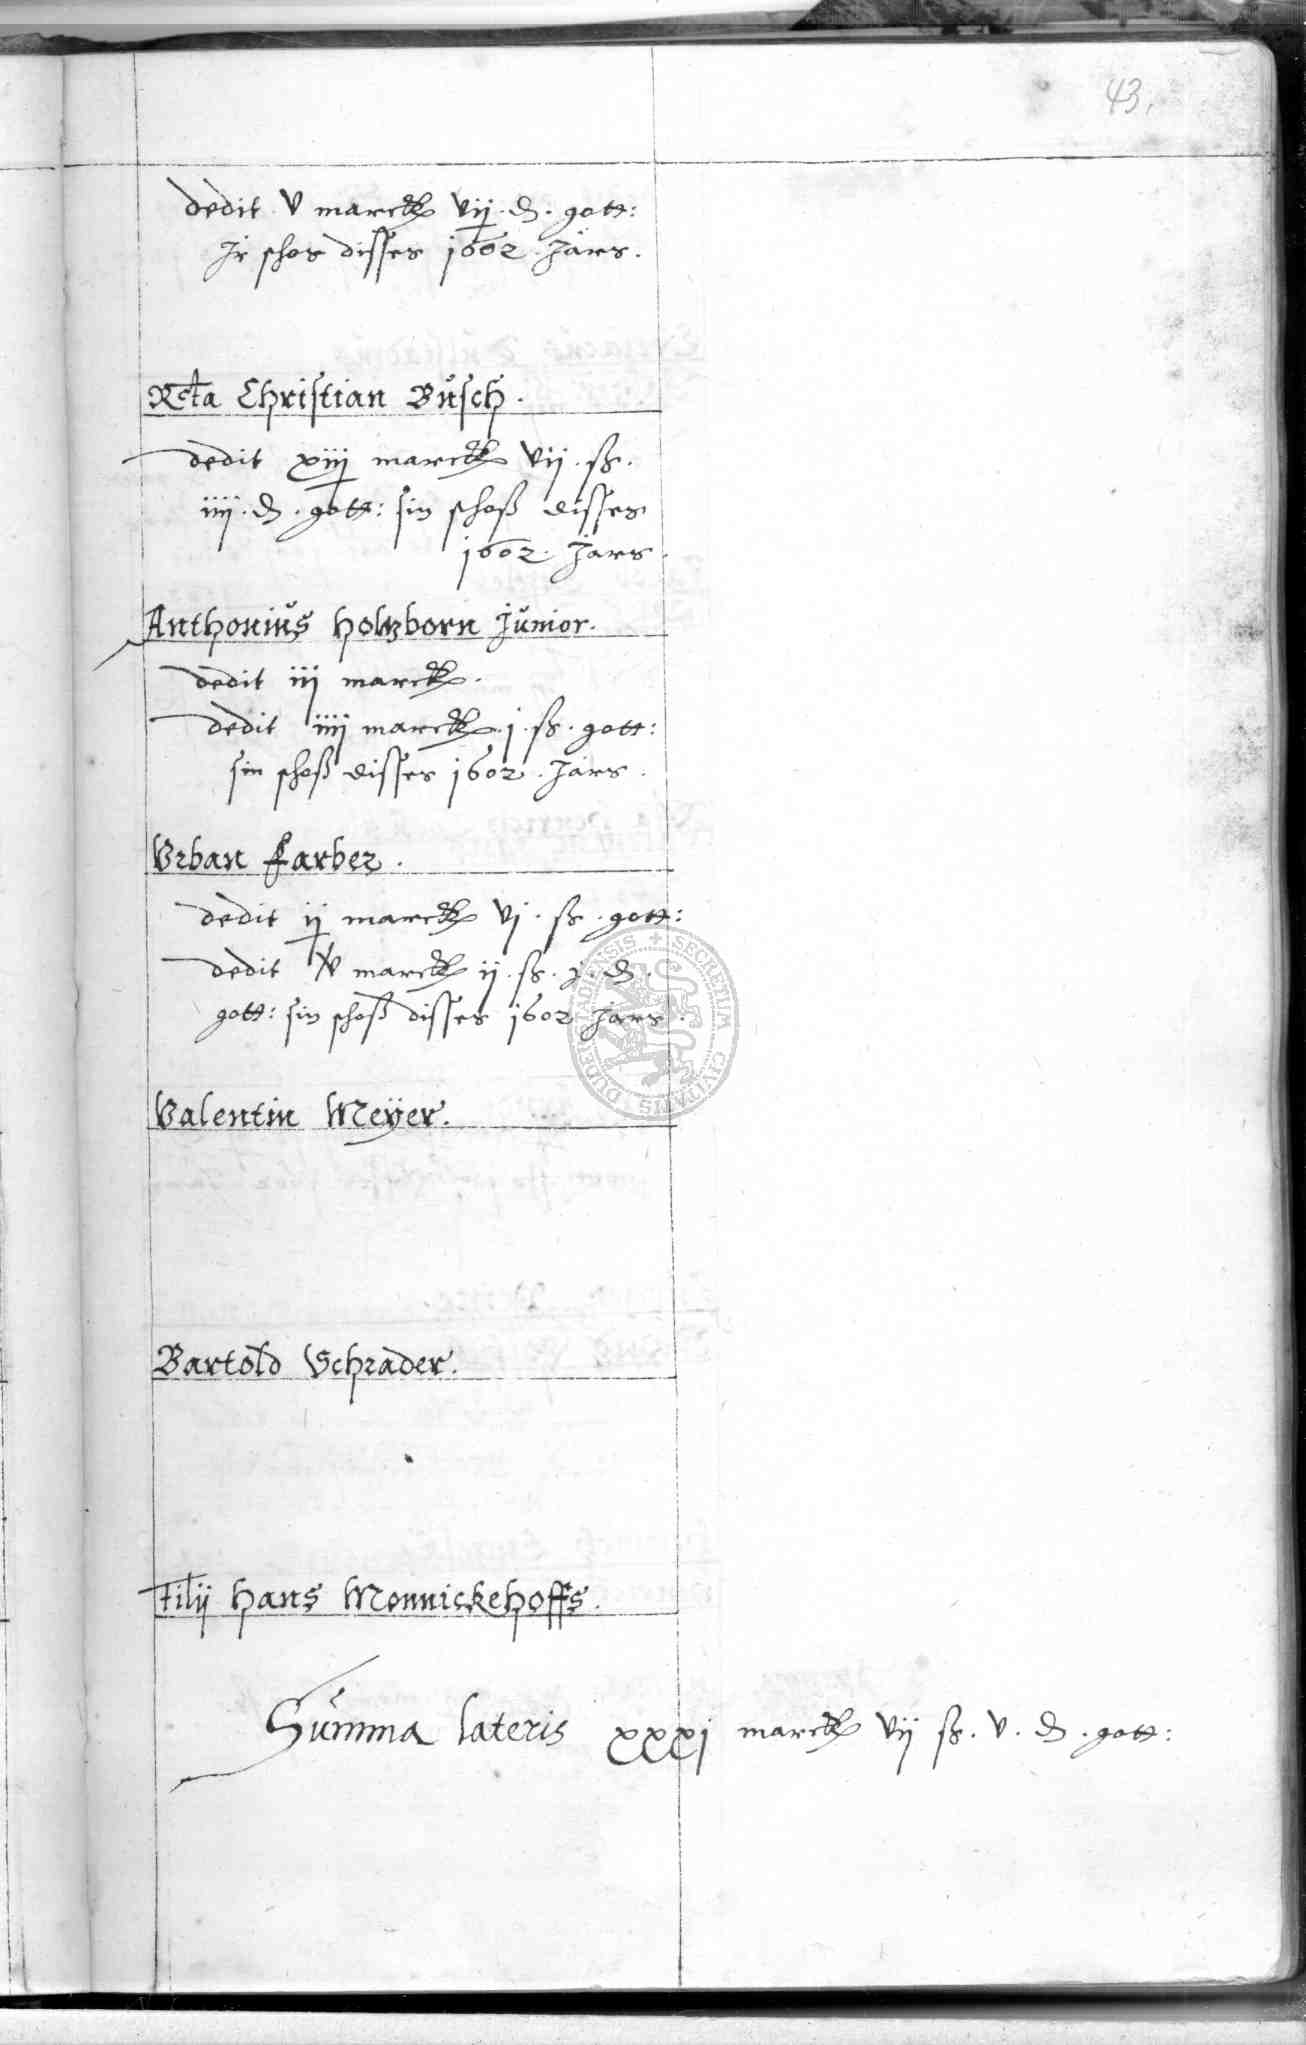 43.
dedit v marck vij. d. gott:
Jr schos disses 1602. Jars.
Rcta Christian Busch.
dedit xiij marck vij. ß.
iiij. d. gott: sin schoß disses
1602. Jars.
Anthonius holtzborn Junior.
dedit iij marck.
dedit iiij marck. j. ß. gott:
sin schoß disses 1602. Jars.
Vrban Farber.
dedit ij marck vj. ß. gott:
dedit marck ij. ß. j. d.
gott: sin schoß disses 1602 Jars.
Valentin Meÿer.
Bartold Schrader.
Filij Hans Monnickehoffs.
Summa lateris xxxj marck vij ß. v. d. gott:
SECRETUM CIVITATIS DUDERSTADIENSIS